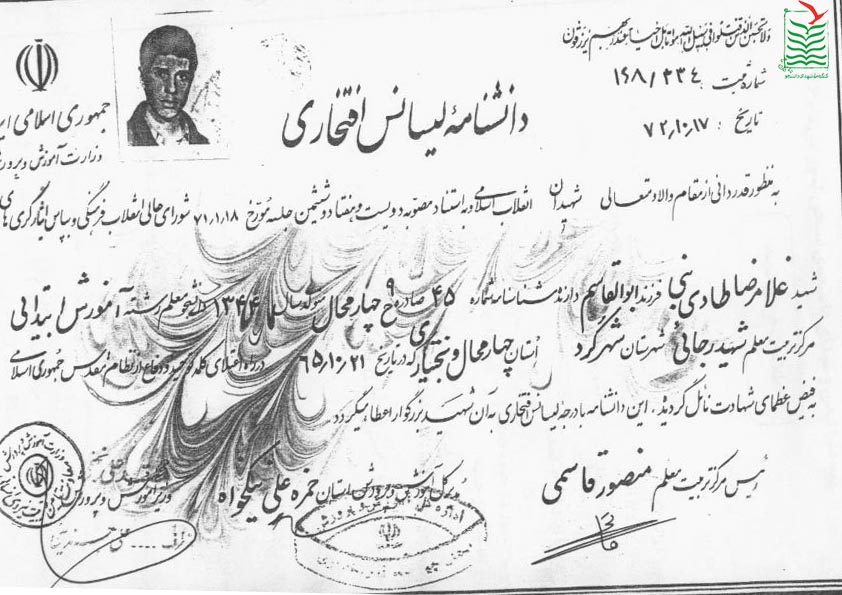 ولا تحسبن الذین قتلوا فی سبیل الله امواتا بل احیاء عند ربهم یرزقون
شماره ثبت ۱۹۸/۲۳۴
تاریخ: ۷۲٫۱۰٫۱۷
جمهوری اسلامی ایر
وزارت آموزش و پرور
دانشنامهٔ لیسانس افتخاری
به منظور قدردانی از مقام والا و متعالی شهیدان انقلاب اسلامی و به استناد مصوبه دویست و هفتاد و ششمین جلسه مورخ ۷۱٫۱٫۱۸ شورای عالی انقلاب فرهنگی و بپاس ایثارگری های
شهید غلامرضا طادی بنی فرزند ابوالقاسم دارنده شناسنامه شماره ۴۵ صادره چهارمحال متولد سال ۱۳۴۴ دانشجو معلم رشته آموزش ابتدائی
مرکز تربیت معلم شهید رجائی شهرستان شهرکرد استان چهارمحال و بختیاری که در تاریخ ۶۵٫۱۰٫۲۱ در راه اعتلای کلمه توحید و دفاع از نظام مقدس جمهوری اسلامی
به فیض عظمای شهادت نائل گردید، این دانشنامه با درجه لیسانس افتخاری به آن شهید بزرگوار اعطا میگردد.
رئیس مرکز تربیت معلم منصور قاسمی
مدیرکل آموزش و پرورش استان حمزه علی نیکخواه
وزیر آموزش و پرورش